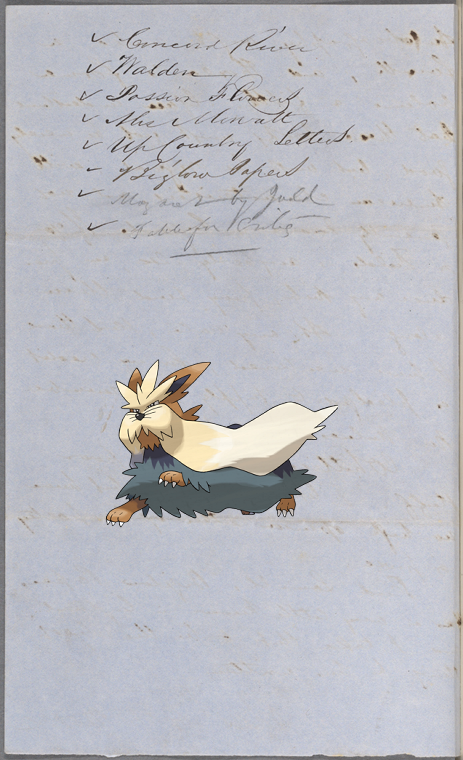 ✓ Concord River
✓ Walden
✓ Passion Flowers
✓ Mrs Mowatt
✓ Up Country Letters
– Biglow Papers
✓ Margaret by Judd
✓ Fable for Critics